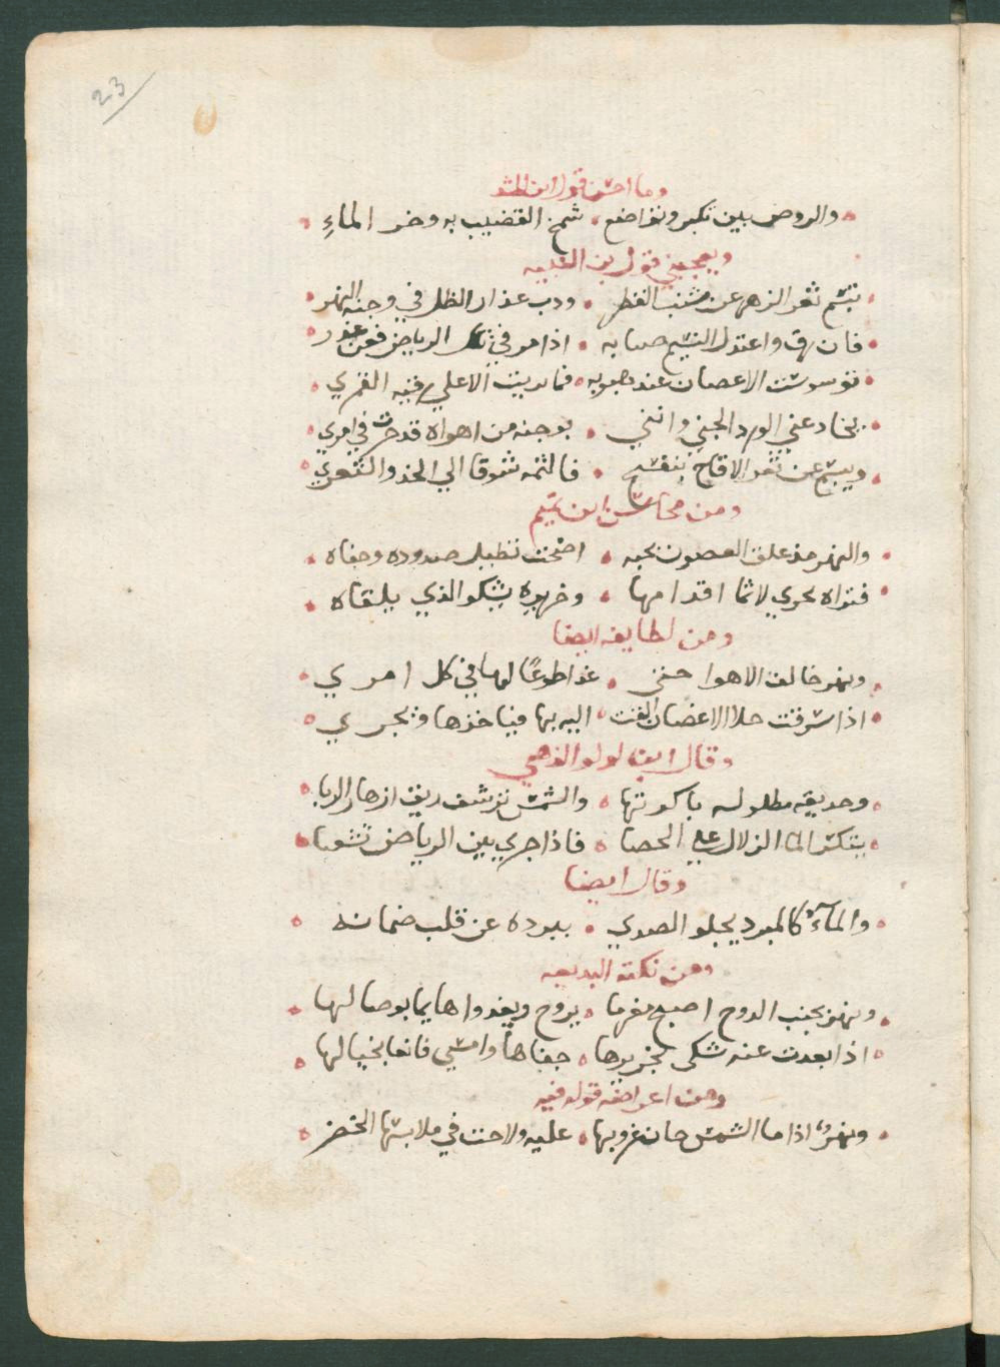 23
وما احسن قول ابن
والروض بين تكبر وتواضع • شمخ القضيب به وخر الماءِ
ويعجبني قول بن النبيه
تبسّم ثغر الزهر عن شنب القطر • ودب عذار الظل في وجنة النهر
فان رق واعتدل النسيم صبابه • اذا مر في تلك الرياض فعن عذر
توسوست الاغصان عند هبوبه • فما بريت الا على رقية القمري
يخادعني الورد الجني وانني • بوجنة من اهواه قد حرت في امري
ويبسم عن ثغر الاقاح بنفسج • فالثمه شوقا الي الخد والثغري
ومن محاسن ابن تميم
والنهر مذ علق الغصون محبه • اضحت تطيل صدوده وجفاه
فتراه يجري لاثما اقدامها • وخريره يشكو الذي يلقاه
ومن لطايفه ايضا
ونهر خالف الاهوا حتى • غدا طوعًا لها في كل امري
اذا سرقت حلا الاغصان القت • اليه بها فياخذها ويجري
وقال ابن لولو الذهبي
وحديقه مطلوله باكرتها • والشمس ترشف ريق ازهار الربا
يتكسّر الما الزلال علي الحصا • فاذا جري بين الرياض تشعبا
وقال ايضا
والمآء كالمبرد يجلو الصدي • ببرده عن قلب ضمانه
ومن نكته البديعه
ونهر بجنب الدوح اصبح مغرما • يروح ويغدوا هايما بوصالها
اذا بعدت عنه شكى بخريرها • جفاها وامسي قانعا بخيالها
ومن اعراضه قوله فيه
ونهرٌ اذا ما الشمس حان غروبها • عليه ولاحت في ملابسها الخضر